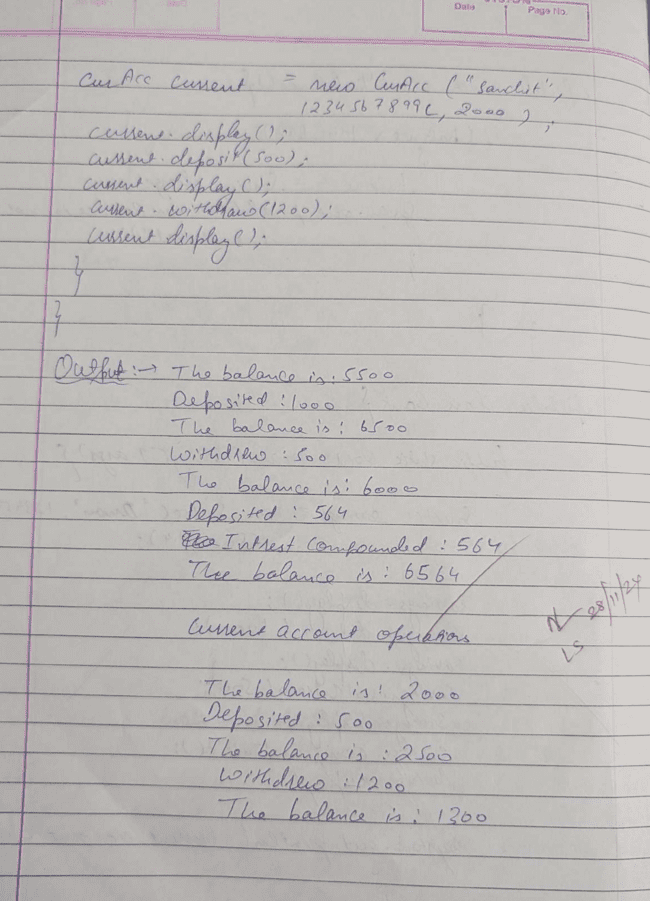 Date
Page No.
CurAcc current = new CurAcc ("Sanchit",
1234567899L, 2000);
current.display();
current.deposit(500);
current.display();
current.withdraw(1200);
current display();
}
}
Output :→ The balance is: 5500
Deposited : 1000
The balance is: 6500
Withdrew : 500
The balance is: 6000
Deposited : 564
Intrest compounded : 564
The balance is : 6564
Current account operations
28/11/24
The balance is: 2000
Deposited : 500
The balance is : 2500
Withdrew : 1200
The balance is : 1300